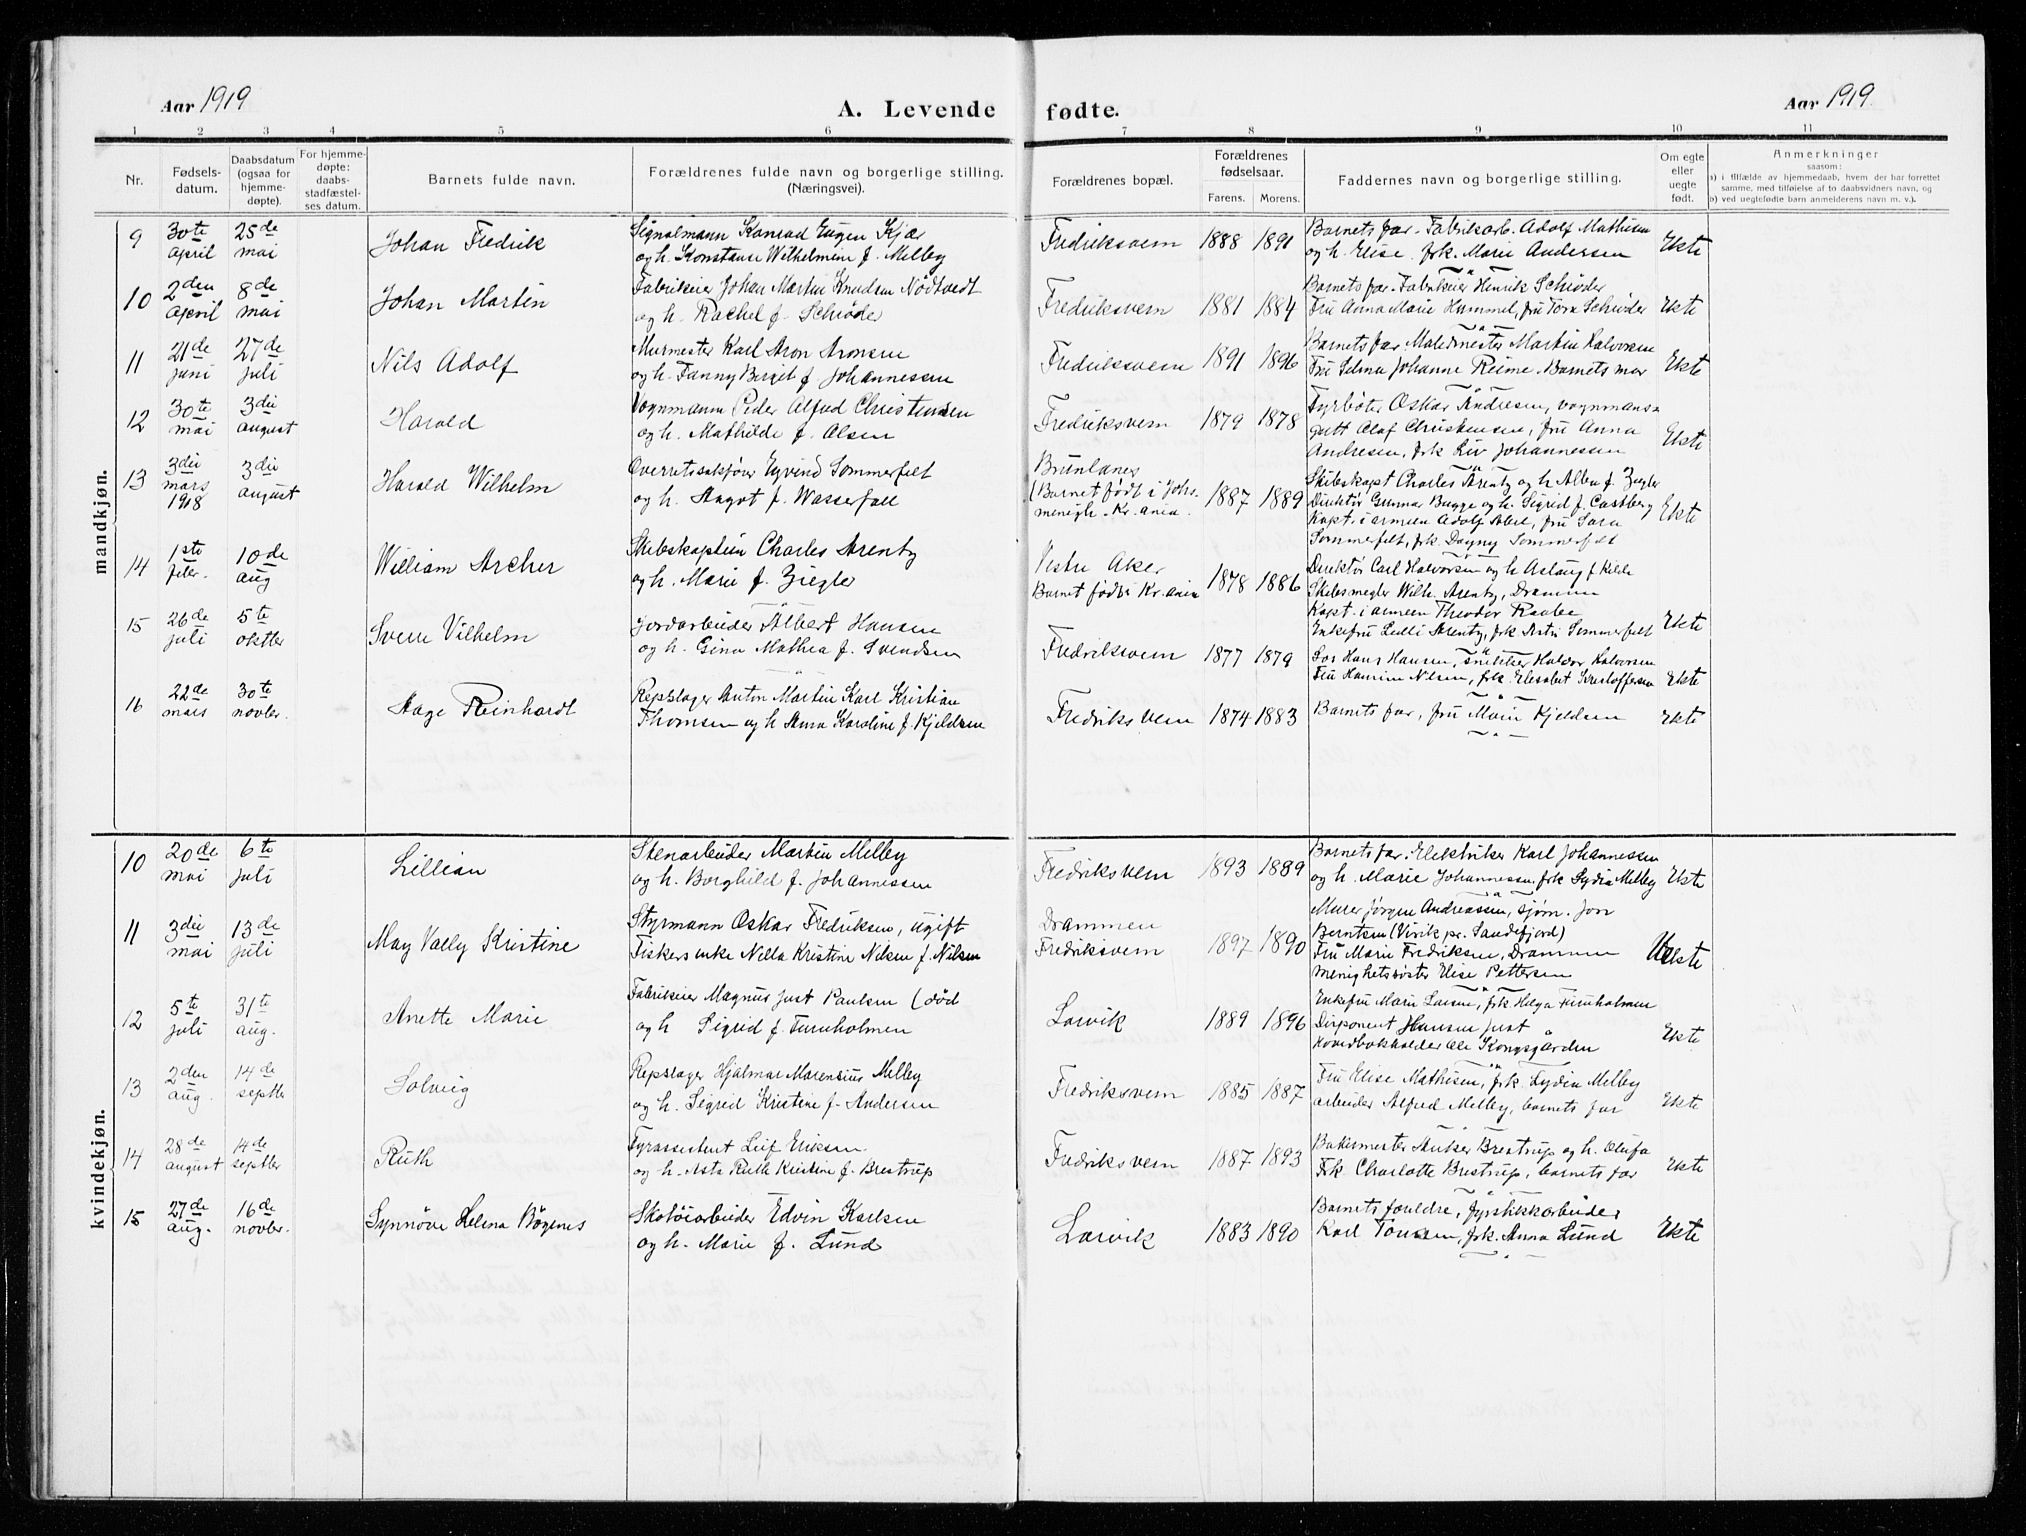 Aar 1919
A. Levende fødte.
Aar 1919.
1 2 3 4 5 6 7 8 9 10 11
Nr.
Fødsels-
datum.
Daabsdatum
(ogsaa for
hjemme-
døpte).
For hjemme-
døpte:
daabs-
stadfæstel-
ses datum.
Barnets fulde navn.
Forældrenes fulde navn og borgerlige stilling.
(Næringsvei).
Forældrenes bopæl.
Forældrenes
fødselsaar.
Farens. Morens.
Faddernes navn og borgerlige stilling.
Om egte
eller
uegte
født.
Anmerkninger
saasom:
a) i tilfælde av hjemmedaab, hvem der har forrettet
samme, med tilføielse af to daabsvidners navn, og
b) ved uegtefødte barn anmelderens navn m. v.).
mandkjøn.
9 30te april 25de mai Johan Fredrik
Signalmann Konrad Eugen Kjær
og h. Konstanse Wilhelmine f. Melby
Fredriksvern 1888 1891
Barnets far. Fabrikarb. Adolf Mathisen
og h. Elise. frk. Marie Andersen
Ekte
10 2den april 8de mai Johan Martin
Fabrikeier Johan Martin Knudsen Nödtvedt
og h. Rachel f. Schiøder
Fredriksvern 1881 1884
Barnets far. Fabrikeier Hinrik Schiøder
Fru Anna Marie Hummel, fru Tora Schiøder
Ekte
11 21de juni 27de juli Nils Adolf
Murmester Karl Aron Aronsen
og h. Fanny Birgit f. Johannessen
Fredriksvern 1891 1896
Barnets far Malermester Martin Halvorsen
Fru Selma Johanne Reime. Barnets mor
Ekte
12 30te mai 3die august Harald
Vognmann Peder Alfred Christensen
og h. Mathilde f. Olsen
Fredriksvern 1879 1878
Fyrböter Oskar Andresen, vognmans-
gutt Olaf Christensen, fru Anna
Andresen, frk Liv Johannessen
Ekte
13 3die mars 1918 3die august Harald Wilhelm
Overretssakfører Eyvind Sommerfelt
og h. Aagot f. Wasserfall
Brunlanes
(Barnet født i Johs.
menigh. Kr.ania.
1887 1889
Skibskapt Charles Arentz og h Alben f. Ziegler
Direktør Gunnar Bugge og h. Sigrid f. Castberg
Kapt. i armeen Adolf Abel, fru Sara
Sommerfelt, frk. Dagny Sommerfelt
Ekte
14 1ste feber. 10de aug William Archer
Skibskaptein Charles Arentz
og h. Marie f. Ziegler
Vestre Aker
Barnet født i Kr.ania
1878 1886
Direktør Carl Halvorsen og h Aslaug f Kilde
Skibsmegler Wilh. Arentz, Drammen
Kapt. i armeen Theodor Raabe
Enkefru Lulli Arentz, frk Astri Sommerfelt
Ekte
15 26de juli 5te oktber Sverre Vilhelm
Jordarbeider Albert Hansen
og h. Gina Mathea f. Svendsen
Fredriksvern 1877 1879
Los Hans Hansen, snekker Haldor Halvorsen
Fru Hanine Nilsen, frk. Elisabet Kristoffersen
Ekte
16 22de mars 30te novber. Aage Reinhardt
Repslager Anton Martin Karl Kristian
Thomsen og h Anna Karoline f. Kjeldsen
Fredriksvern 1874 1883
Barnets far, fru Marie Kjeldsen
Ekte
kvindekjøn.
10 20de mai 6te juli Lillian
Stenarbeider Martin Melby
og h. Borghild f. Johannessen
Fredriksvern 1893 1889
Barnets far. Elektriker Karl Johannessen
og h. Marie Johannessen. frk Lydia Melby
Ekte
11 3die mai 13de juli May Vally Kristine
Styrmann Oskar Fredriksen, ugift
Fiskers enke Nilla Kristine Nilsen f. Nilsen
Drammen
Fredriksvern
1897 1890
Murer Jørgen Andreassen, sjøm. Jon
Berntsen (Virik pr. Sandefjord)
Fru Marie Fredriksen, Drammen
Menighetssøster Elise Pettersen
Uekte
12 5te juli 31te aug. Anette Marie
Fabrikeier Magnus Just Paulsen (død
og h Sigrid f. Furuholmen
Larvik 1889 1896
Enkefru Marie Larsen, frk Helga Furuholmen
Disponent Hansen Just
Hovedbokholder Ole Kongsgården
Ekte
13 2den aug. 14de septber Solveig
Repslager Hjalmar Marensius Melby
og h. Sigrid Kristine f. Andersen
Fredriksvern 1885 1887
Fru Elise Mathisen, frk. Lydia Melby
arbeider Alfred Melby, barnets far
Ekte
14 28de august 14de septber Ruth
Fyrassistent Leif Eriksen
og h. Asta Ruth Kristine f. Brestrup
Fredriksvern 1887 1893
Bakermester Anker Brestrup og h. Olufa
Frk Charlotte Brestrup, barnets far
Ekte
15 27de aug. 16de novber. Synnöve Helena Bögenes
Skotöiarbeider Edvin Karlsen
og h. Marie f. Lund
Larvik 1883 1890
Barnets foreldre, fyrstikkarbeider
Karl Tonesen, frk. Anna Lund
Ekte